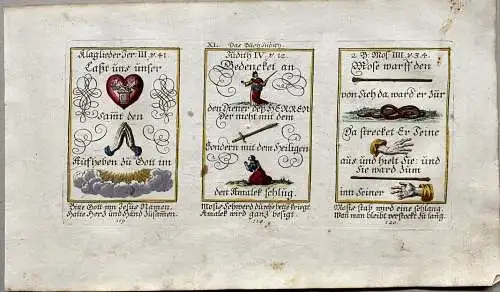 XI. Das Buch Judith.
Klaglieder Jer. III. v. 41.
Laßt uns unser
Samt den
Auffheben zu Gott im
Bitte Gott im Jesus Namen,
Halte Hertz und Hand zusamen.
119.
Judith IV. v. 12.
Gedencket an
den Diener des HERREN
Der nicht mit dem
Sondern mit dem Heiligen
den Amalek schlug.
Mosis Schwerd durchs bette kriegt
Amalek wird gantz besigt.
2. B. Mos. IIII. v. 3. 4.
Mose warff den
von sich da ward er zur
Da strecket Er seine
aus und hielt Sie: und
Sie ward zum
inn Seiner
Mosis stab wird eine schlang.
Wan man bleibt verstockt zu lang.
120.